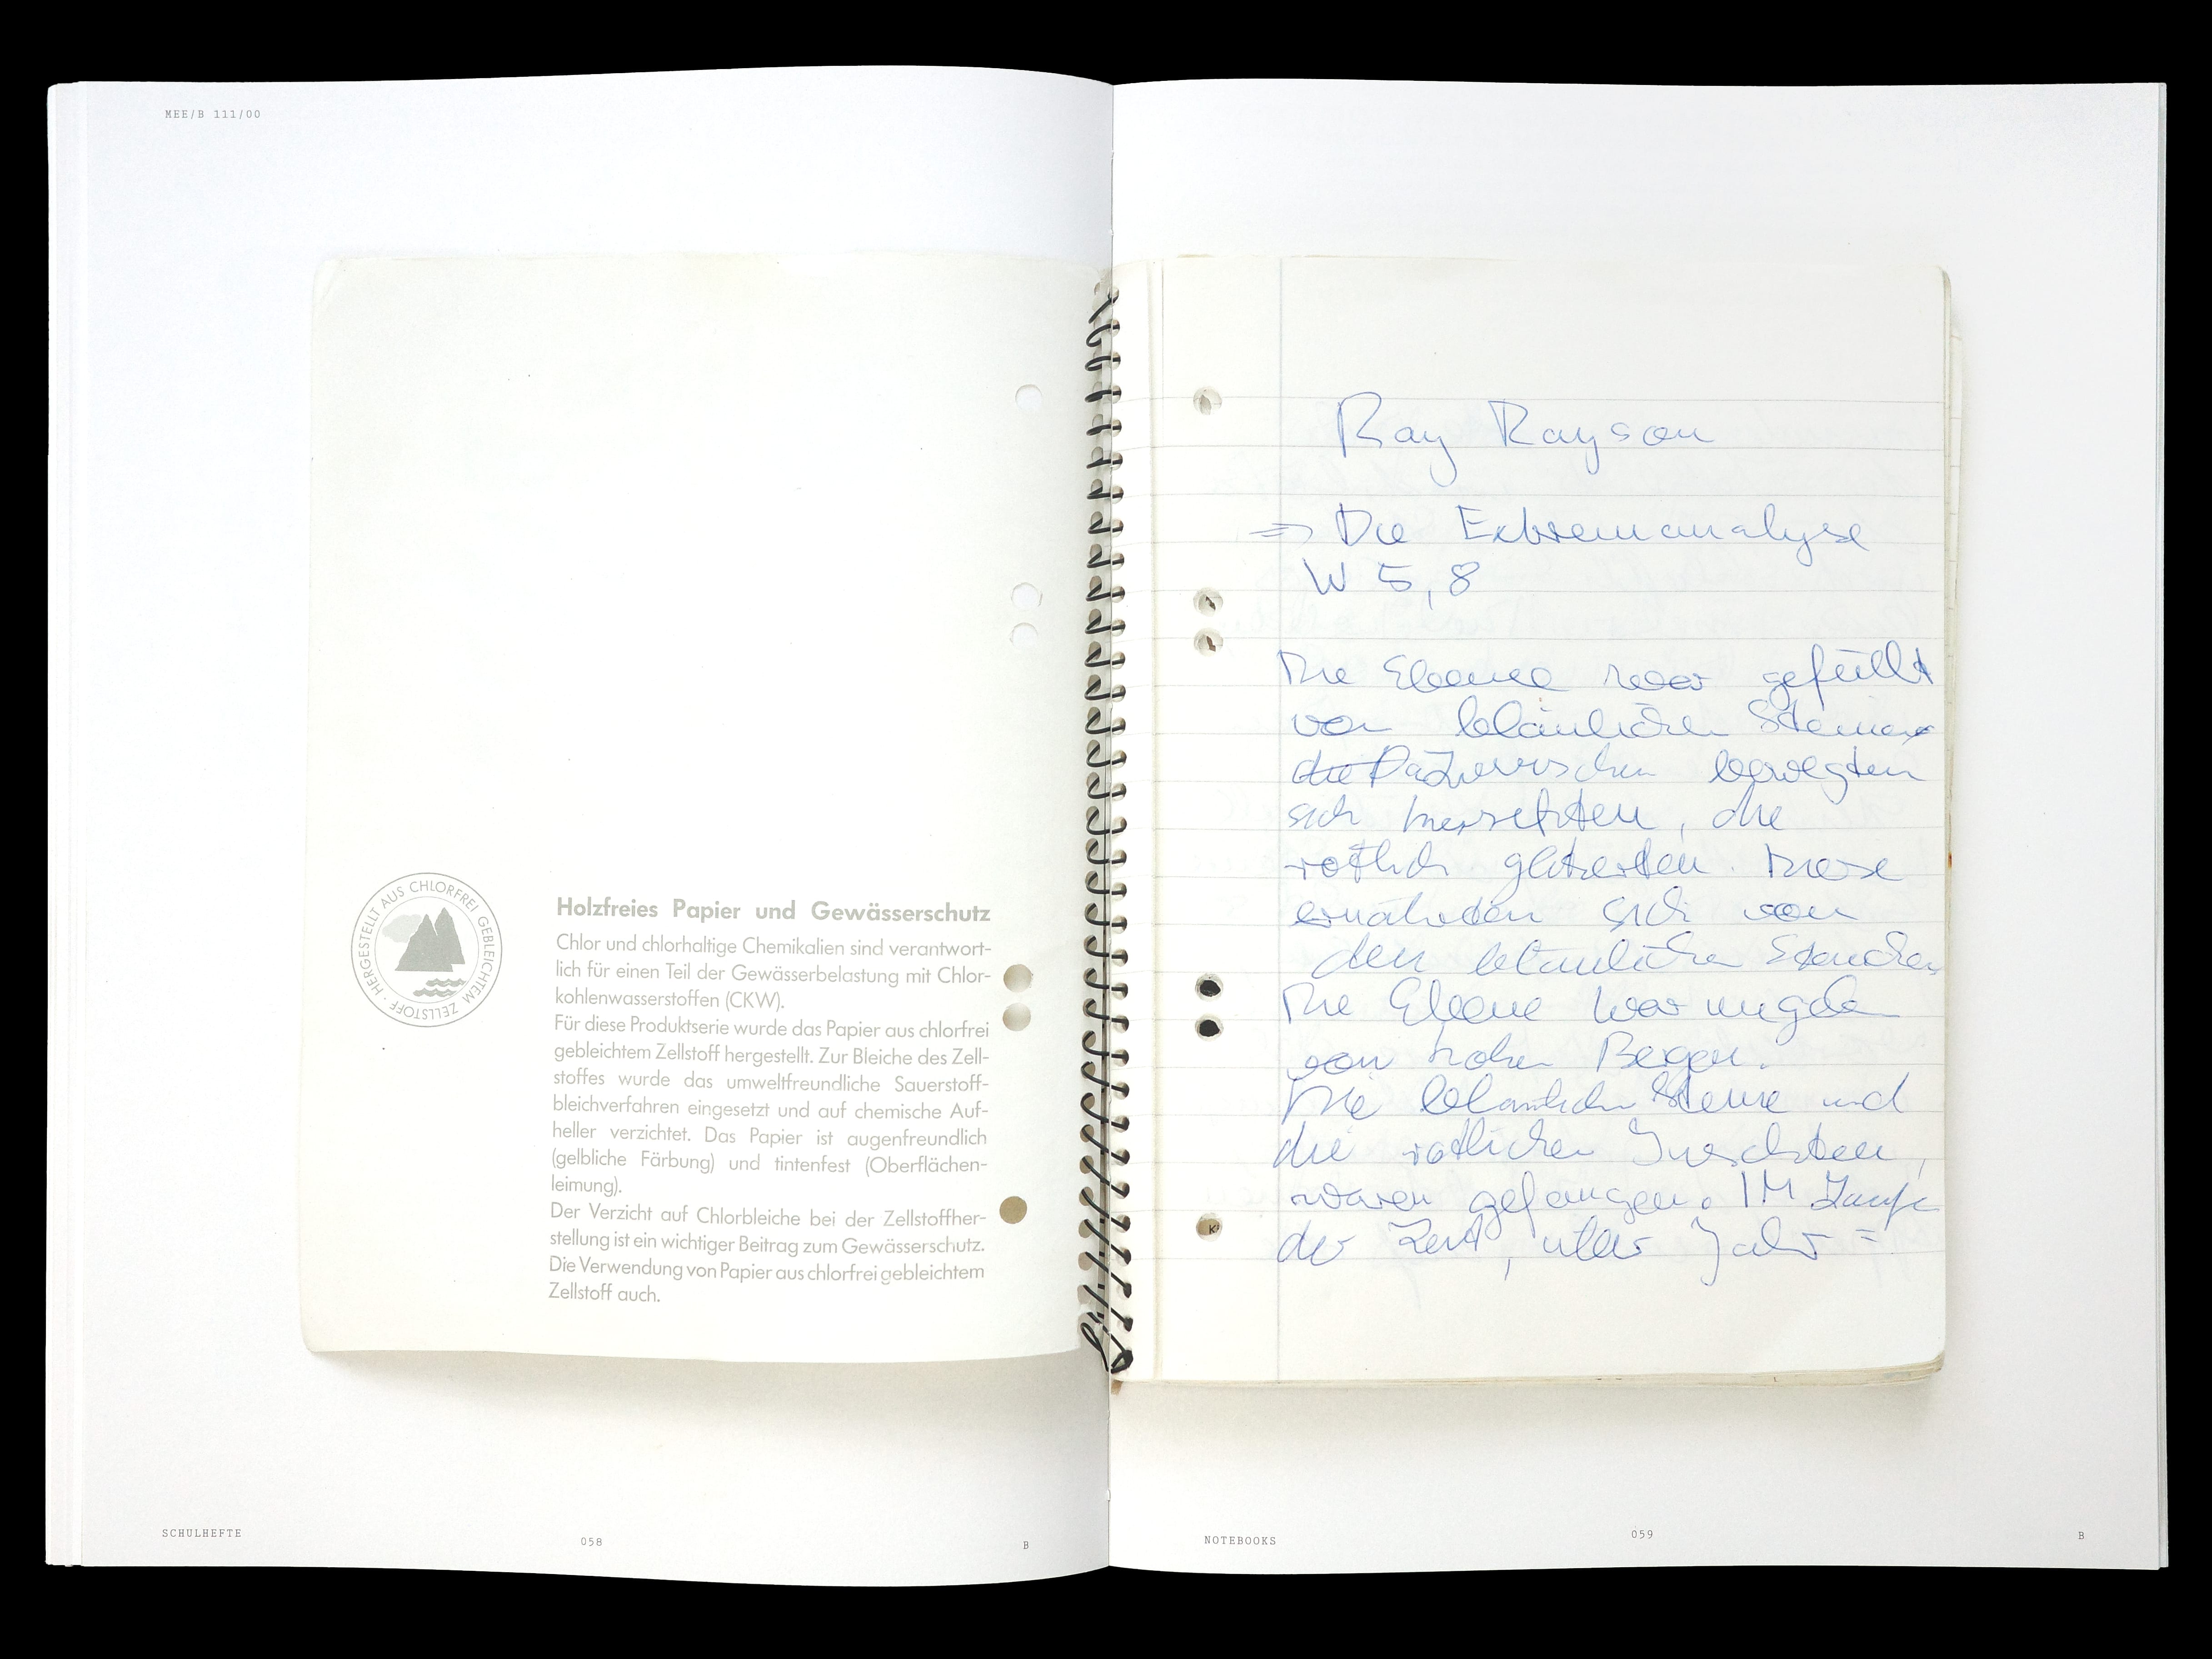 MEE/B 111/00
HERGESTELLT AUS CHLORFREI GEBLEICHTEM ZELLSTOFF ·
Holzfreies Papier und Gewässerschutz
Chlor und chlorhaltige Chemikalien sind verantwort-
lich für einen Teil der Gewässerbelastung mit Chlor-
kohlenwasserstoffen (CKW).
Für diese Produktserie wurde das Papier aus chlorfrei
gebleichtem Zellstoff hergestellt. Zur Bleiche des Zell-
stoffes wurde das umweltfreundliche Sauerstoff-
bleichverfahren eingesetzt und auf chemische Auf-
heller verzichtet. Das Papier ist augenfreundlich
(gelbliche Färbung) und tintenfest (Oberflächen-
leimung).
Der Verzicht auf Chlorbleiche bei der Zellstoffher-
stellung ist ein wichtiger Beitrag zum Gewässerschutz.
Die Verwendung von Papier aus chlorfrei gebleichtem
Zellstoff auch.
SCHULHEFTE
058
B
Ray Rayson
=> Die Extremanalyse
W 5,8
Die Ebene war gefüllt
von bläulichen Steinen
die Dazwischen bewegten
sich Insekten, die
rötlich glitzerten. Diese
ernährten sich von
den bläulichen
Die Ebene war umgeben
von hohen Bergen.
Die bläulichen Steine und
die rötlichen Insekten,
waren gefangen. IM Laufe
der Zeit, Jahr =
NOTEBOOKS
059
B